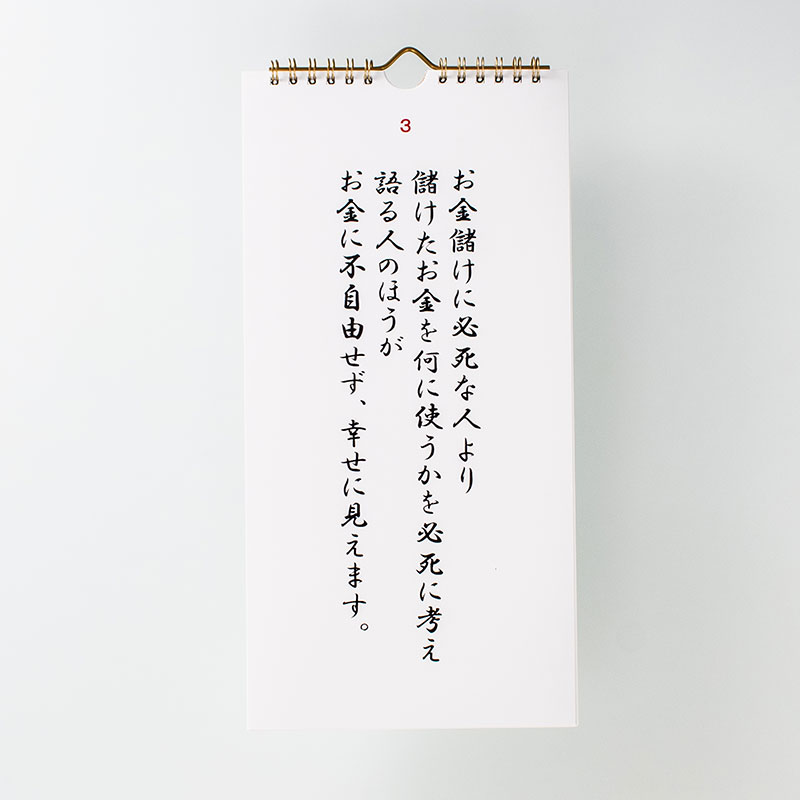 3
お金儲けに必死な人より
儲けたお金を何に使うかを必死に考え
語る人のほうが
お金に不自由せず、幸せに見えます。